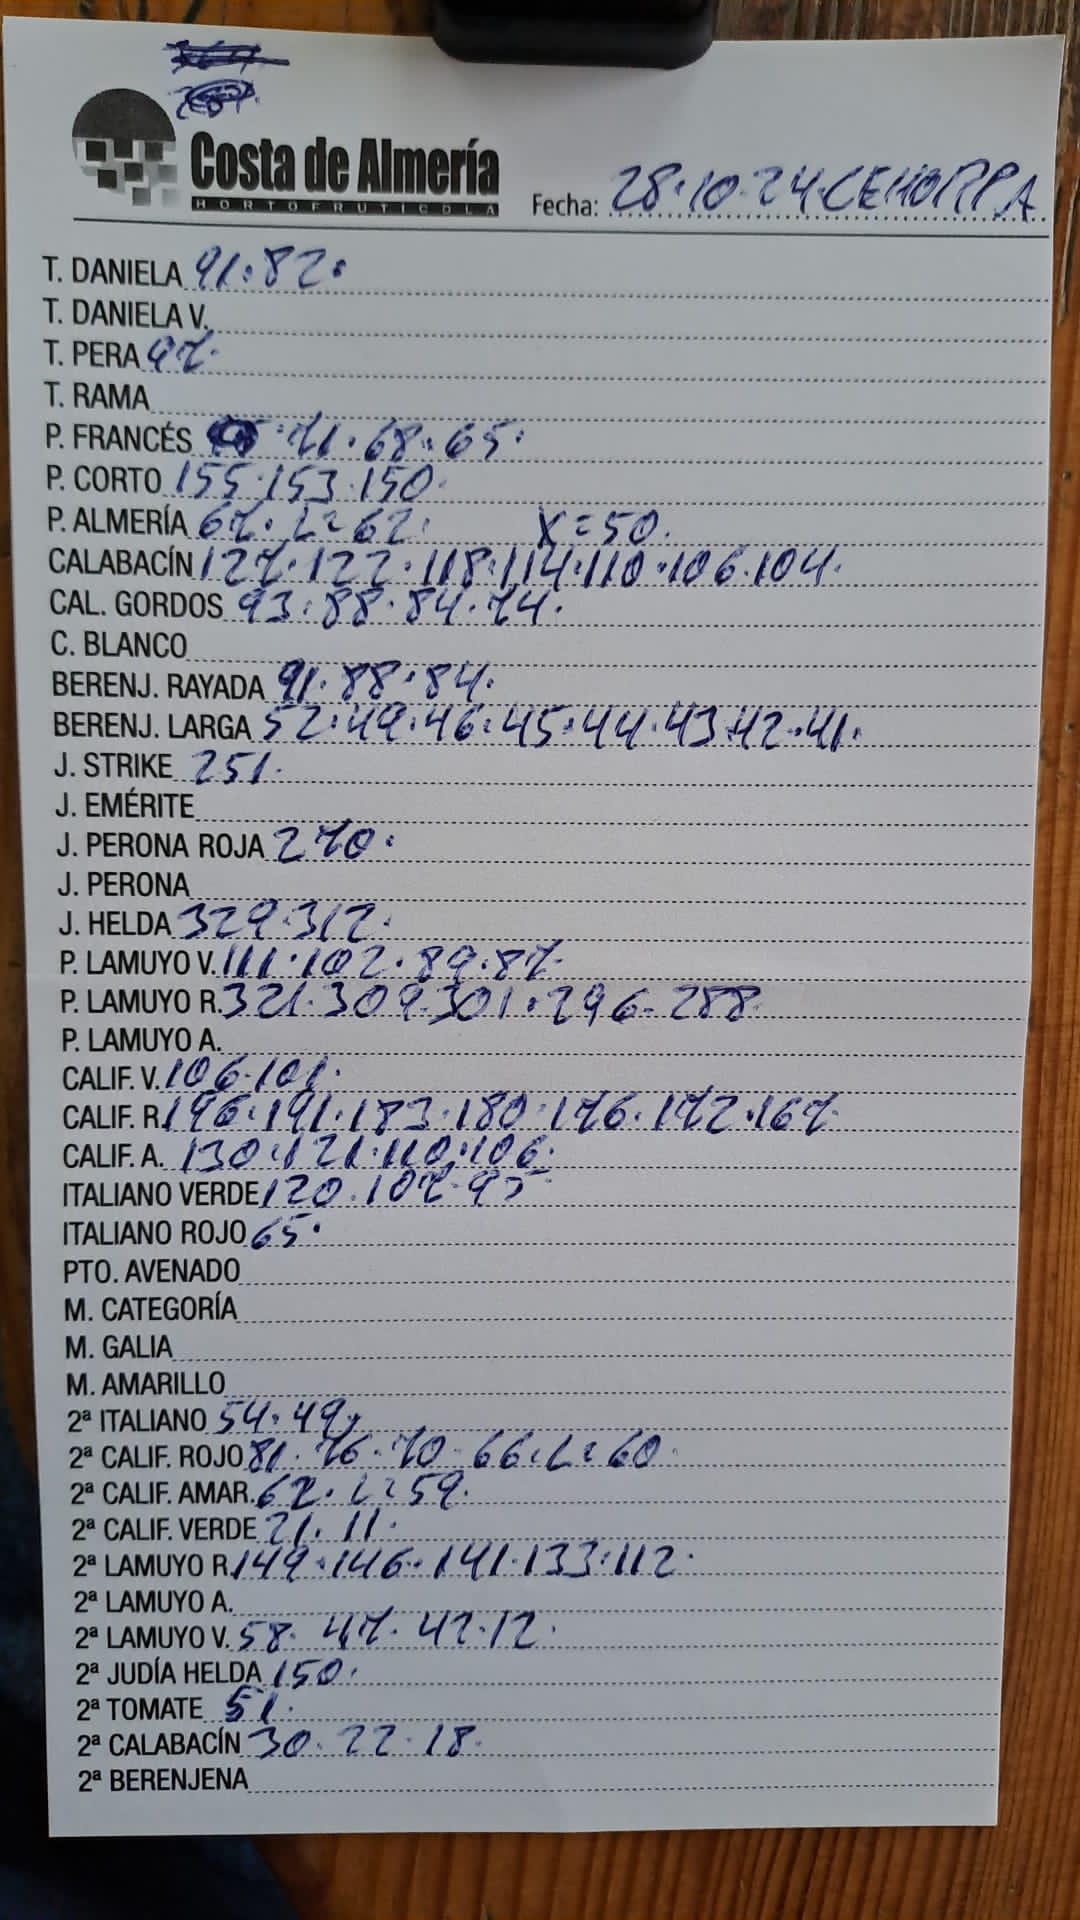 Costa de Almería
HORTOFRUTICOLA
Fecha: 28.10.24.CEHORPA
T. DANIELA 91.82.
T. DANIELA V.
T. PERA 97.
T. RAMA
P. FRANCÉS 71.68.65.
P. CORTO 155.153.150.
P. ALMERÍA 67. L=62. X=50.
CALABACÍN 127.122.118.114.110.106.104.
CAL. GORDOS 93.88.84.74.
C. BLANCO
BERENJ. RAYADA 91.88.84.
BERENJ. LARGA 52.49.46.45.44.43.42.41.
J. STRIKE 251.
J. EMÉRITE
J. PERONA ROJA 270.
J. PERONA
J. HELDA 329.312.
P. LAMUYO V. 111.102.89.87.
P. LAMUYO R. 321.309.301.296.288
P. LAMUYO A.
CALIF. V. 106.101.
CALIF. R. 196.191.183.180.176.172.167.
CALIF. A. 130.121.110.106.
ITALIANO VERDE 120.107.95
ITALIANO ROJO 65.
PTO. AVENADO
M. CATEGORÍA
M. GALIA
M. AMARILLO
2ª ITALIANO 54.49,
2ª CALIF. ROJO 81.76.70.66.L=60.
2ª CALIF. AMAR. 62. L=59.
2ª CALIF. VERDE 21.11.
2ª LAMUYO R. 149.146.141.133.112.
2ª LAMUYO A.
2ª LAMUYO V. 58.47.42.12.
2ª JUDÍA HELDA 150.
2ª TOMATE 51.
2ª CALABACÍN 30.22.18.
2ª BERENJENA